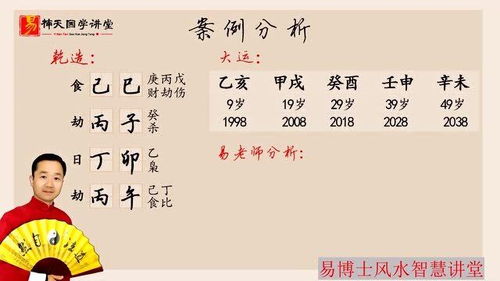 易 博天国学讲堂
案例分析
乾造:
食 己 巳 庚丙戊
财劫伤
劫 丙 子 癸
杀
日 丁 卯 乙
枭
劫 丙 午 己丁
食比
大运:
乙亥 甲戌 癸酉 壬申 辛未
9岁 19岁 29岁 39岁 49岁
1998 2008 2018 2028 2038
易老师分析:
易博士风水智慧讲堂